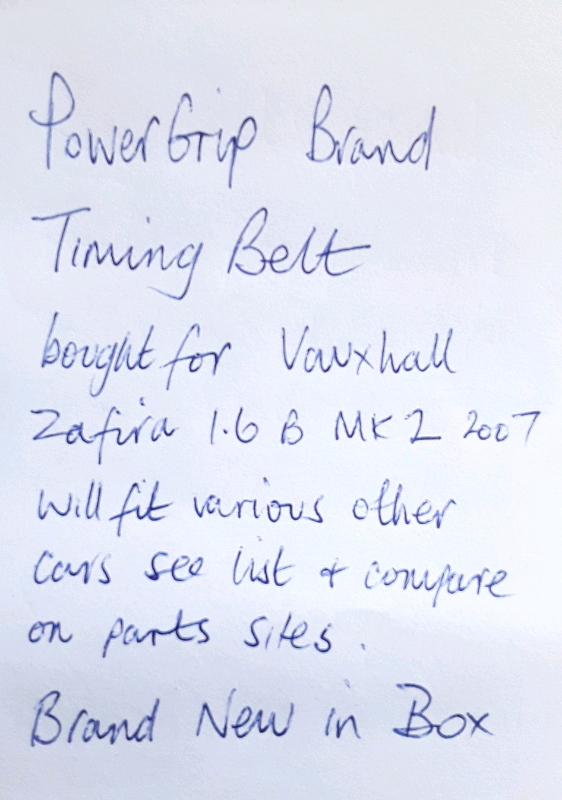 PowerGrip Brand
Timing Belt
bought for Vauxhall
Zafira 1.6 B MK2 2007
will fit various other
cars see list + compare
on parts sites.
Brand New in Box